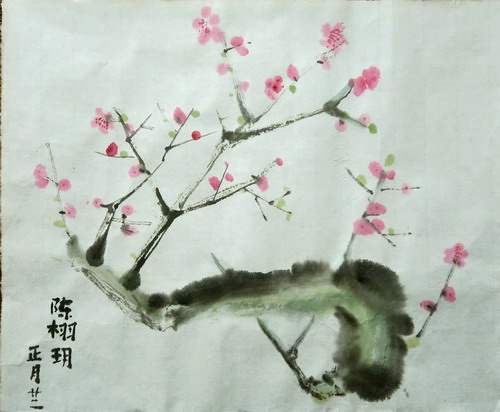 陈栩玥
正月廿二